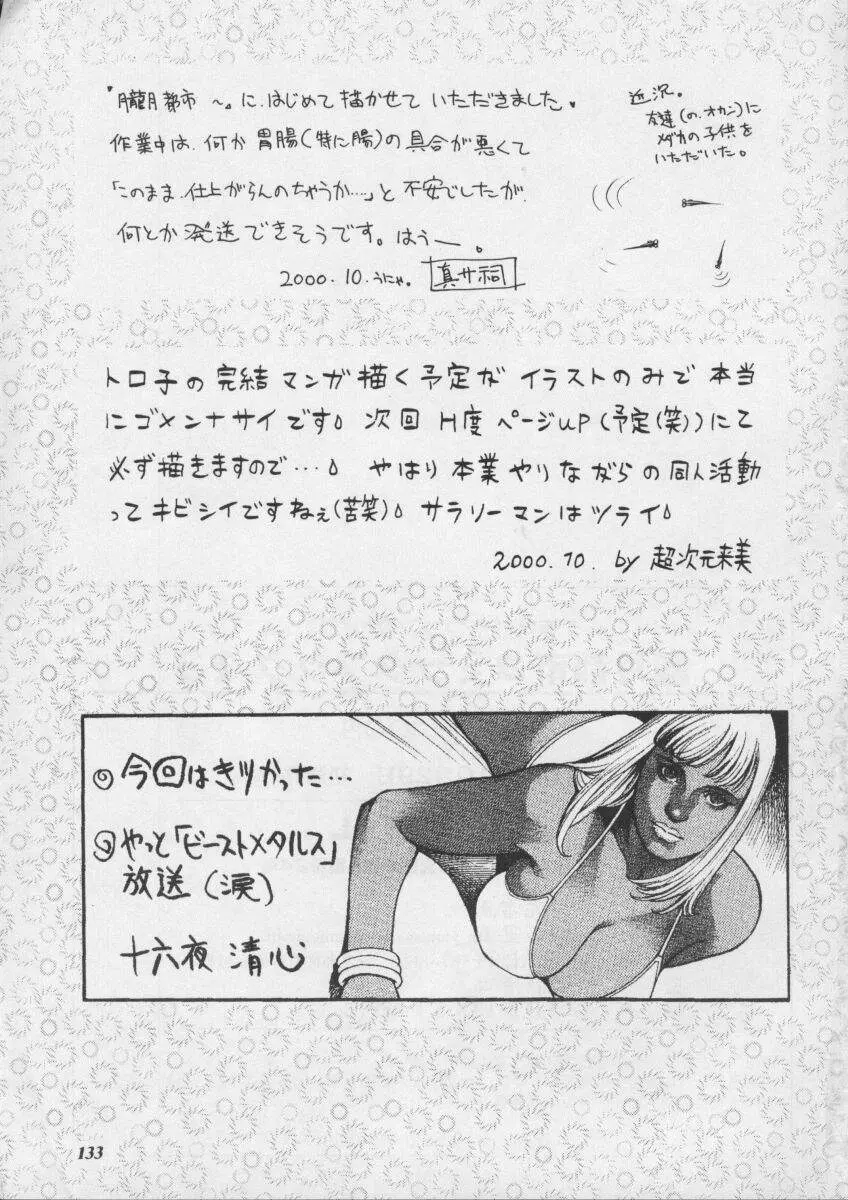 『朧月都市 〜』に、はじめて描かせて いただきました。
作業中は、何か 胃腸(特に腸)の 具合が悪くて
「このまま、仕上がらんのちゃうか…」と 不安でしたが、
何とか 発送できそうです。はうー。
2000.10.うにゃ。 真サ祠
近況。
友達(の、オカン)に
メダカの子供を
いただいた。
トロ子の完結マンガ描く予定が イラストのみで 本当
にゴメンナサイです。次回 H度 ページUP(予定(笑))にて
必ず描きますので…。やはり 本業やりながらの同人活動
ってキビシイですねぇ(苦笑)。サラリーマンはツライ。
2000.10. by 超次元来美
今回はきつかった…
やっと「ビーストメタルス」
放送(涙)
十六夜 清心
133